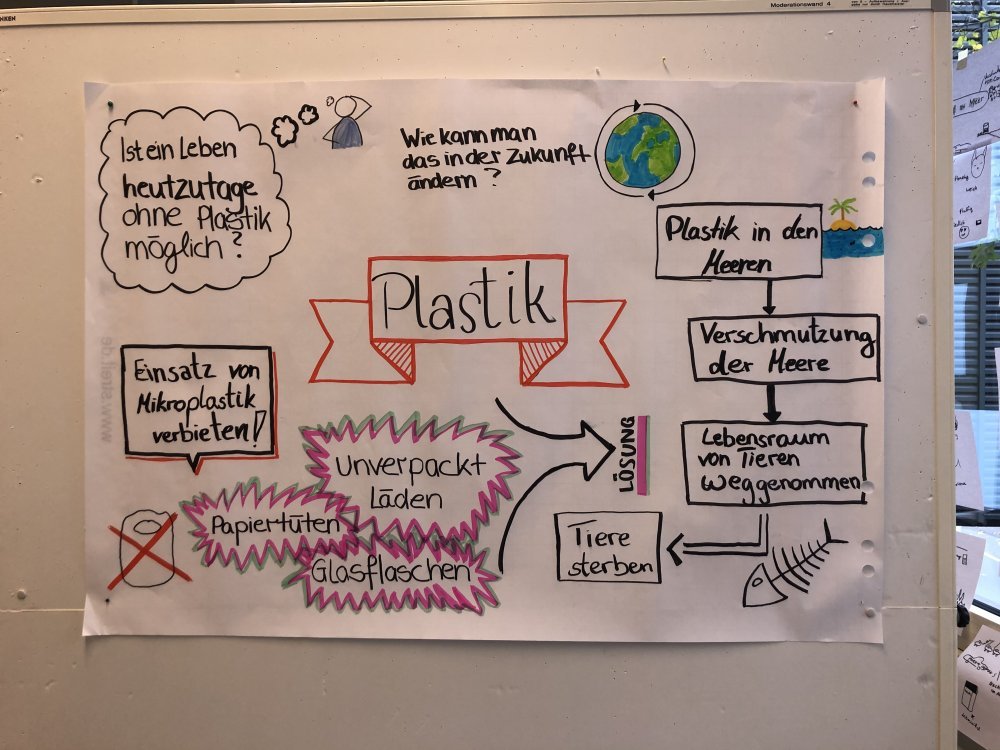 Moderationswand 4
Ist ein Leben
heutzutage
ohne Plastik
möglich?
Wie kann man
das in der Zukunft
ändern?
Plastik in den
Meeren
Verschmutzung
der Meere
Lebensraum
von Tieren
weggenommen
Tiere
sterben
Plastik
Einsatz von
Mikroplastik
verbieten!
Unverpackt
Läden
Papiertüten
Glasflaschen
LÖSUNG
www.streit.de